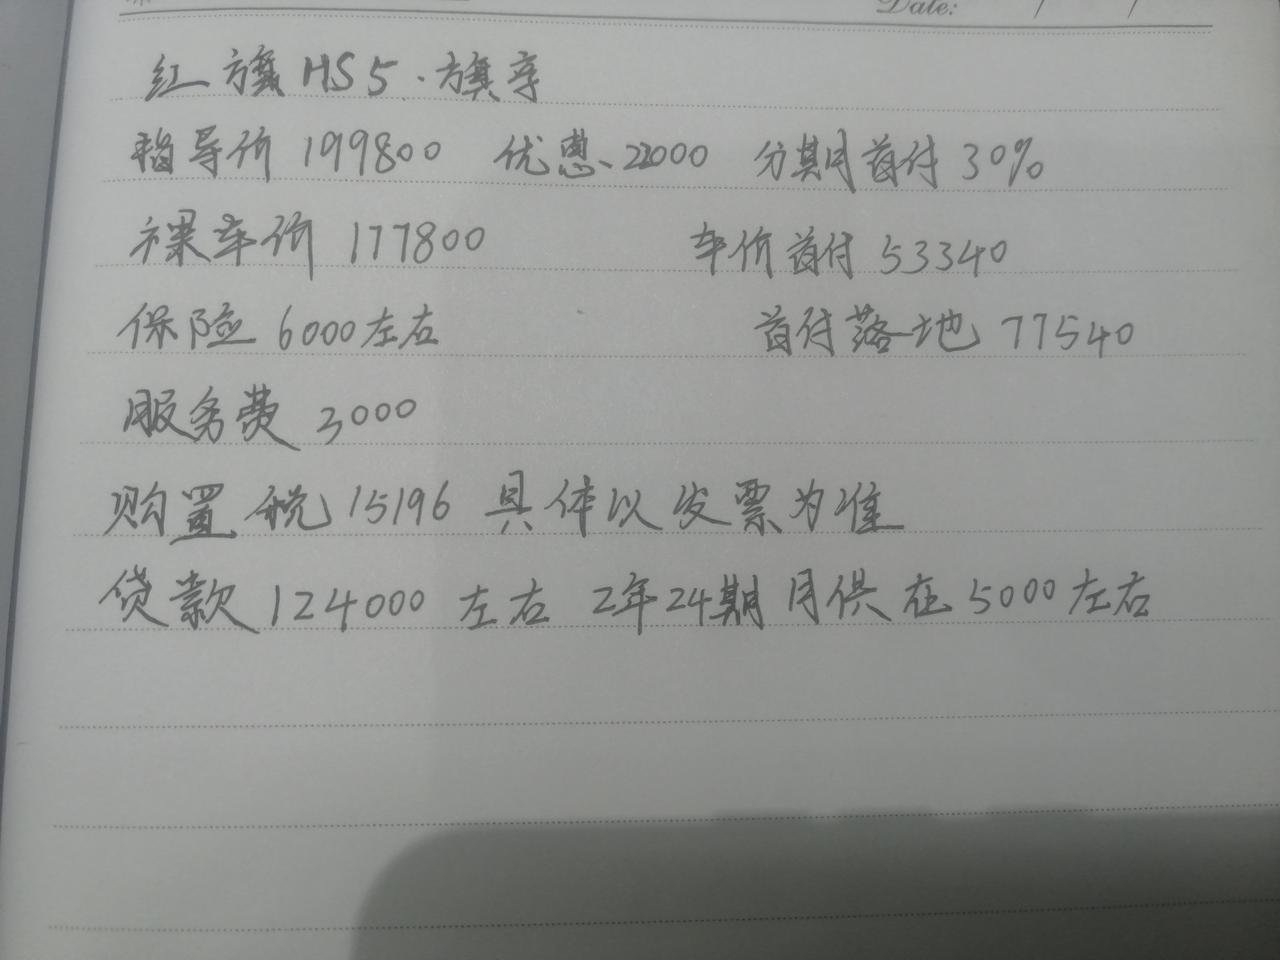 Date: / /
红旗HS5·旗享
指导价 199800 优惠、22000 分期首付30%
裸车价 177800 车价首付 53340
保险 6000左右 首付落地 77540
服务费 3000
购置税15196 具体以发票为准
贷款124000 左右 2年24期月供在5000左右